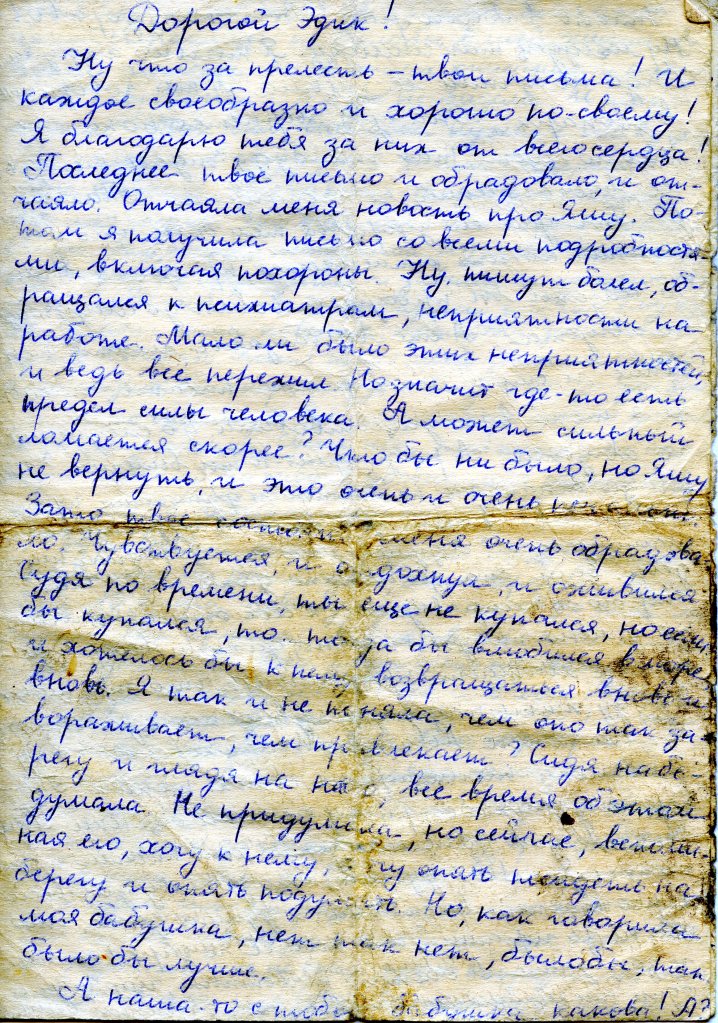 Дорогой Эдик!
Ну что за прелесть – твои письма! И
каждое своеобразно и хорошо по-своему!
Я благодарю тебя за них от всего сердца!
Последнее твое письмо и обрадовало, и от-
чаяло. Отчаяла меня новость про Яшу. По-
том я получила письмо со всеми подробностя-
ми, включая похороны. Ну, пишут болел, об-
ращался к психиатрам, неприятности на
работе. Мало ли было этих неприятностей,
и ведь все пережил. Но значит где-то есть
предел силы человека. А может сильный
ломается скорее? Что бы ни было, но Яшу
не вернуть, и это очень и очень
Зато твое меня очень обрадова-
ло. Чувствуется, и отдохнул, и оживился
Судя по времени, ты еще не купался, но если
бы купался, то тогда бы влюбился в море
и хотелось бы к нему возвращаться вновь и
вновь. Я так и не поняла, чем оно так за-
вораживает, чем привлекает? Сидя на бе-
регу и глядя на него, все время об этом
думала. Не придумала, но сейчас, вспоми-
ная его, хочу к нему, хочу опять на
берегу и опять подумать. Но, как говорила
моя бабушка, нет так нет, было бы, так
было бы лучше.
А наша-то с тобой бабушка какова! А?